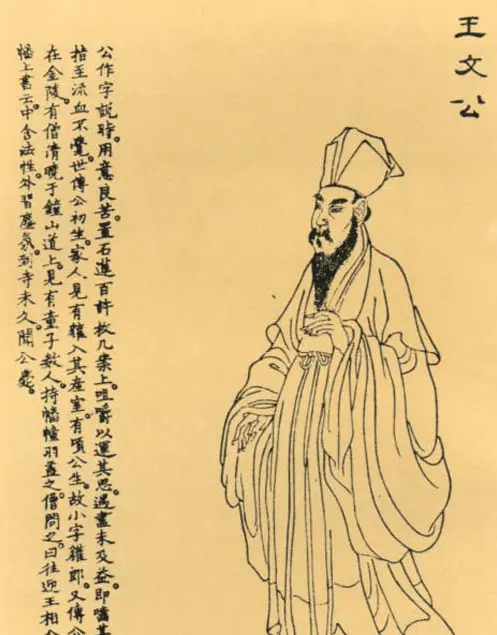 王文公
公作字說時。用意良苦。置石蓮百許枚几案上。咀嚼以運其思。遇盡未及益。即嚙其
指至流血不覺。世傳公初生。家人見有獾入其產室。有頃公生。故小字獾郎。又傳公
在金陵有僧清曉于鐘山道上。見有童子數人。持幡幢羽蓋之。僧問之。曰往迎王相公
幡上書云。中含法性。外習塵氛。到寺未久。聞公薨。